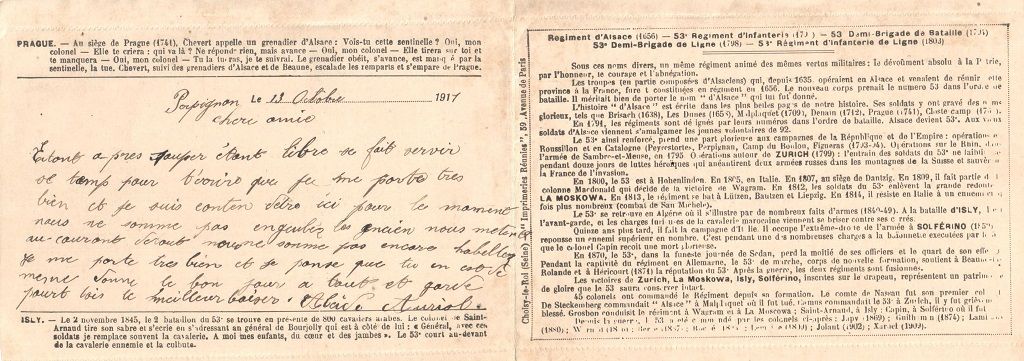 PRAGUE. — Au siège de Prague (1741), Chevert appelle un grenadier d'Alsace : Vois-tu cette sentinelle ? Oui, mon
colonel — Elle te criera : qui va là ? Ne réponds rien, mais avance — Oui, mon colonel — Elle tirera sur toi et
te manquera — Oui, mon colonel — Tu la tueras, je te suivrai. Le grenadier obéit, s'avance, est manqué par la
sentinelle, la tue. Chevert, suivi des grenadiers d'Alsace et de Beaune, escalade les remparts et s'empare de Prague.
Perpignon le 13 Octobre 1917
chere amie
Etant apres souper étant libre se fait servir
se temp pour t'écrire que je me porte tres
bien et je suis conten d'etre ici pour le moment
nous ne somme pas engueulés les ancien nous mete
au courant de tout nous ne somme pas encore habellez
je me porte tres bien et je panse que tu en est de
meme Donne le bon jour a tout et garde
pour toi le meilleur baiser Auriol
ISLY. — Le 2 novembre 1845, le 2 bataillon du 53e se trouve en présence de 800 cavaliers arabes. Le colonel de Saint-
Arnaud tire son sabre et s'écrie en s'adressant au général de Bourjolly qui est à côté de lui : « Général, avec ces
soldats je remplace souvent la cavalerie. A moi mes enfants, du cœur et des jambes ». Le 53e court au-devant
de la cavalerie ennemie et la culbute.
Choisy-le-Roi (Seine) "Imprimeries Réunies", 59, Avenue de Paris
Regiment d'Alsace (1656) — 53e Régiment d'Infanterie — 53e Demi-Brigade de Bataille
53e Demi-Brigade de Ligne (1796) — 53e Régiment d'Infanterie de Ligne (1803)
Sous ces noms divers, un même régiment animé des mêmes vertus militaires : le dévoûment absolu à la Patrie,
par l'honneur, le courage et l'abnégation.
Les troupes (en partie composées d'Alsaciens) qui, depuis 1635, opéraient en Alsace et venaient de réunir cette
province à la France, furent constituées en régiment en 1656. Le nouveau corps prenait le numéro 53 dans l'ordre de
bataille. Il méritait bien de porter le nom "d'Alsace" qui lui fut donné.
L'histoire "d'Alsace" est écrite dans les plus belles pages de notre histoire. Ses soldats y ont gravé des noms
glorieux, tels que Brisach (1638), Les Dunes (1658), Malplaquet (1709), Denain (1712), Prague (1741), Clostercamp
En 1791, les régiments sont désignés par leurs numéros dans l'ordre de bataille. Alsace devient 53e. Aux vieux
soldats d'Alsace viennent s'amalgamer les jeunes volontaires de 92.
Le 53e ainsi renforcé, prend une part glorieuse aux campagnes de la République et de l'Empire : opérations en
Roussillon et en Catalogne (Peyrestortes, Perpignan, Camp du Boulou, Figueras (1793-94). Opérations sur le Rhin,
l'armée de Sambre-et-Meuse, en 1795. Opérations autour de ZURICH (1799) : l'entrain des soldats du 53e ne faiblit
pendant douze jours de luttes héroïques qui anéantirent deux armées russes dans les montagnes de la Suisse et sauvèrent
la France de l'invasion.
En 1800, le 53 est à Hohenlinden. En 1805, en Italie. En 1807, au siège de Dantzig. En 1809, il fait partie de la
colonne Macdonald qui décide de la victoire de Wagram. En 1812, les soldats du 53e enlèvent la grande redoute
LA MOSKOWA. En 1813, le régiment se bat à Lützen, Bautzen et Leipzig. En 1814, il résiste en Italie à un ennemi
fois plus nombreux (combat de San Michele).
Le 53e se retrouve en Algérie où il s'illustre par de nombreux faits d'armes (1840-49). A la bataille d'ISLY,
l'avant-garde, et les charges furieuses de la cavalerie marocaine viennent se briser contre ses carrés.
Quinze ans plus tard, il fait la campagne d'Italie. Il occupe l'extrême-droite de l'armée à SOLFÉRINO (1859)
repousse un ennemi supérieur en nombre. C'est pendant une des nombreuses charges à la baïonnette exécutées par
que le colonel Capin reçoit une mort glorieuse.
En 1870, le 53e, dans la funeste journée de Sedan, perd la moitié de ses officiers et le quart de son effectif.
Pendant la captivité du régiment en Allemagne, le 53e de marche, corps de nouvelle formation, soutient à Beaune-la-
Rolande et à Héricourt (1871) la réputation du 53e. Après la guerre, les deux régiments sont fusionnés.
Les victoires de Zurich, La Moskowa, Isly, Solférino, inscrites sur le drapeau, représentent un patrimoine
de gloire que le 53 saura conserver intact.
45 colonels ont commandé le Régiment depuis sa formation. Le comte de Nassau fut son premier colonel
De Steckenberg commandait "Alsace" à Malplaquet où il fut tué. commandait le 53e à Zurich, il y fut grièvement
blessé. Grosbon conduisit le régiment à Wagram et à La Moskowa ; Saint-Arnaud, à Isly ; Capin, à Solférino où il fut
Depuis la guerre, le 53 a été commandé par les colonels ci-après : Japy (1869) ; Guilhem (1874) ;
(1880) ; Jolant (1902) ; (1909).